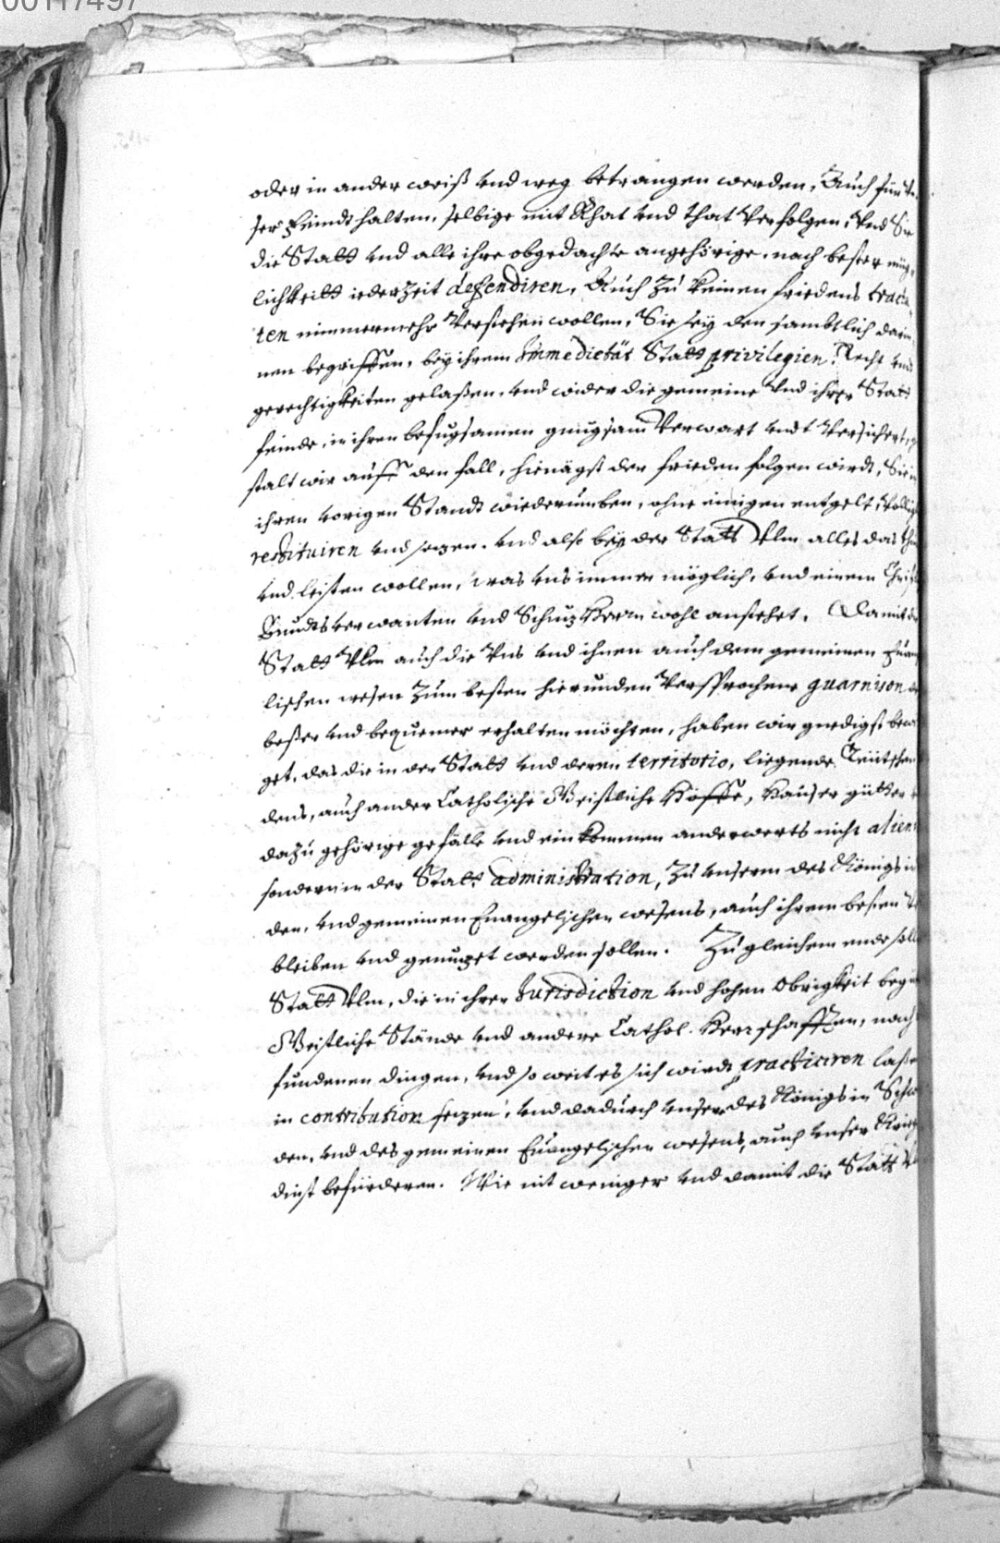 00117497
oder in ander weiß vnd weg betrangen werden, Auch für vn
ser Feindt halten, selbige mit Rhat vnd that Verfolgen, Vnd Sie
die Statt vnd alle ihre obgedachte angehörige, nach bester müg
lichkeitt iederzeit defendiren, Auch zu keinen friedens tracta
ten nimmermehr Verstehen wollen, Sie seÿ den sambtlich darin
nen begriffen, beÿ ihrem Immedietät Statt privilegien, Recht vnd
gerechtigkeiten gelaßen, vnd wider die gemeine Vnd ihrer Statt
feinde, in ihren befugsamen gnugsam Verwart vndt Versichert,
stalt wir auff den fall, hienägst der frieden folgen wirdt, Sie in
ihren vorigen Standt wiederumben, ohne einigen entgelt, Völlig
restituiren vnd sezen. vnd also beÿ der Statt Vlm alles das thun
vnd leisten wollen, was vns immer möglich, vnd einem Christ
Bundtsverwanten vnd Schuz Herrn wohl anstehet. Damit die
Statt Vlm auch die Vns vnd ihnen auch dem gemeinen Euange
lischen wesen zum besten hierunden Versprochene guarnison
beßer vnd bequemer erhalten möchten, haben wir gnedigst bewil
get, das die in der Statt vnd deren territorio, liegende Teütschen
dens, auch ander Catholische Geistliche Höffe, Häuser gütter
dazu gehörige gefälle vnd einkommen anderwerts nicht alien
sondern in der Statt administration, Zu vnserm des Königs in
den, vnd gemeinen Euangelischen wesens, auch ihrem besten
bleiben vnd genuzet werden sollen. Zu gleichem ende soll
Statt Vlm, die in ihrer Jurisdiction vnd hohen Obrigkeit begri
Geistliche Stände vnd andere Cathol. Herrschafften, nach
fundenen dingen, vnd so weit es sich wird practiciren laße
in contribution sezen, vnd dadurch vnser des Königs in Schwe
den, vnd des gemeinen Euangelischen wesens, auch vnser Kriegs
dinst befürderen. Wie nit weniger vnd damit die Statt